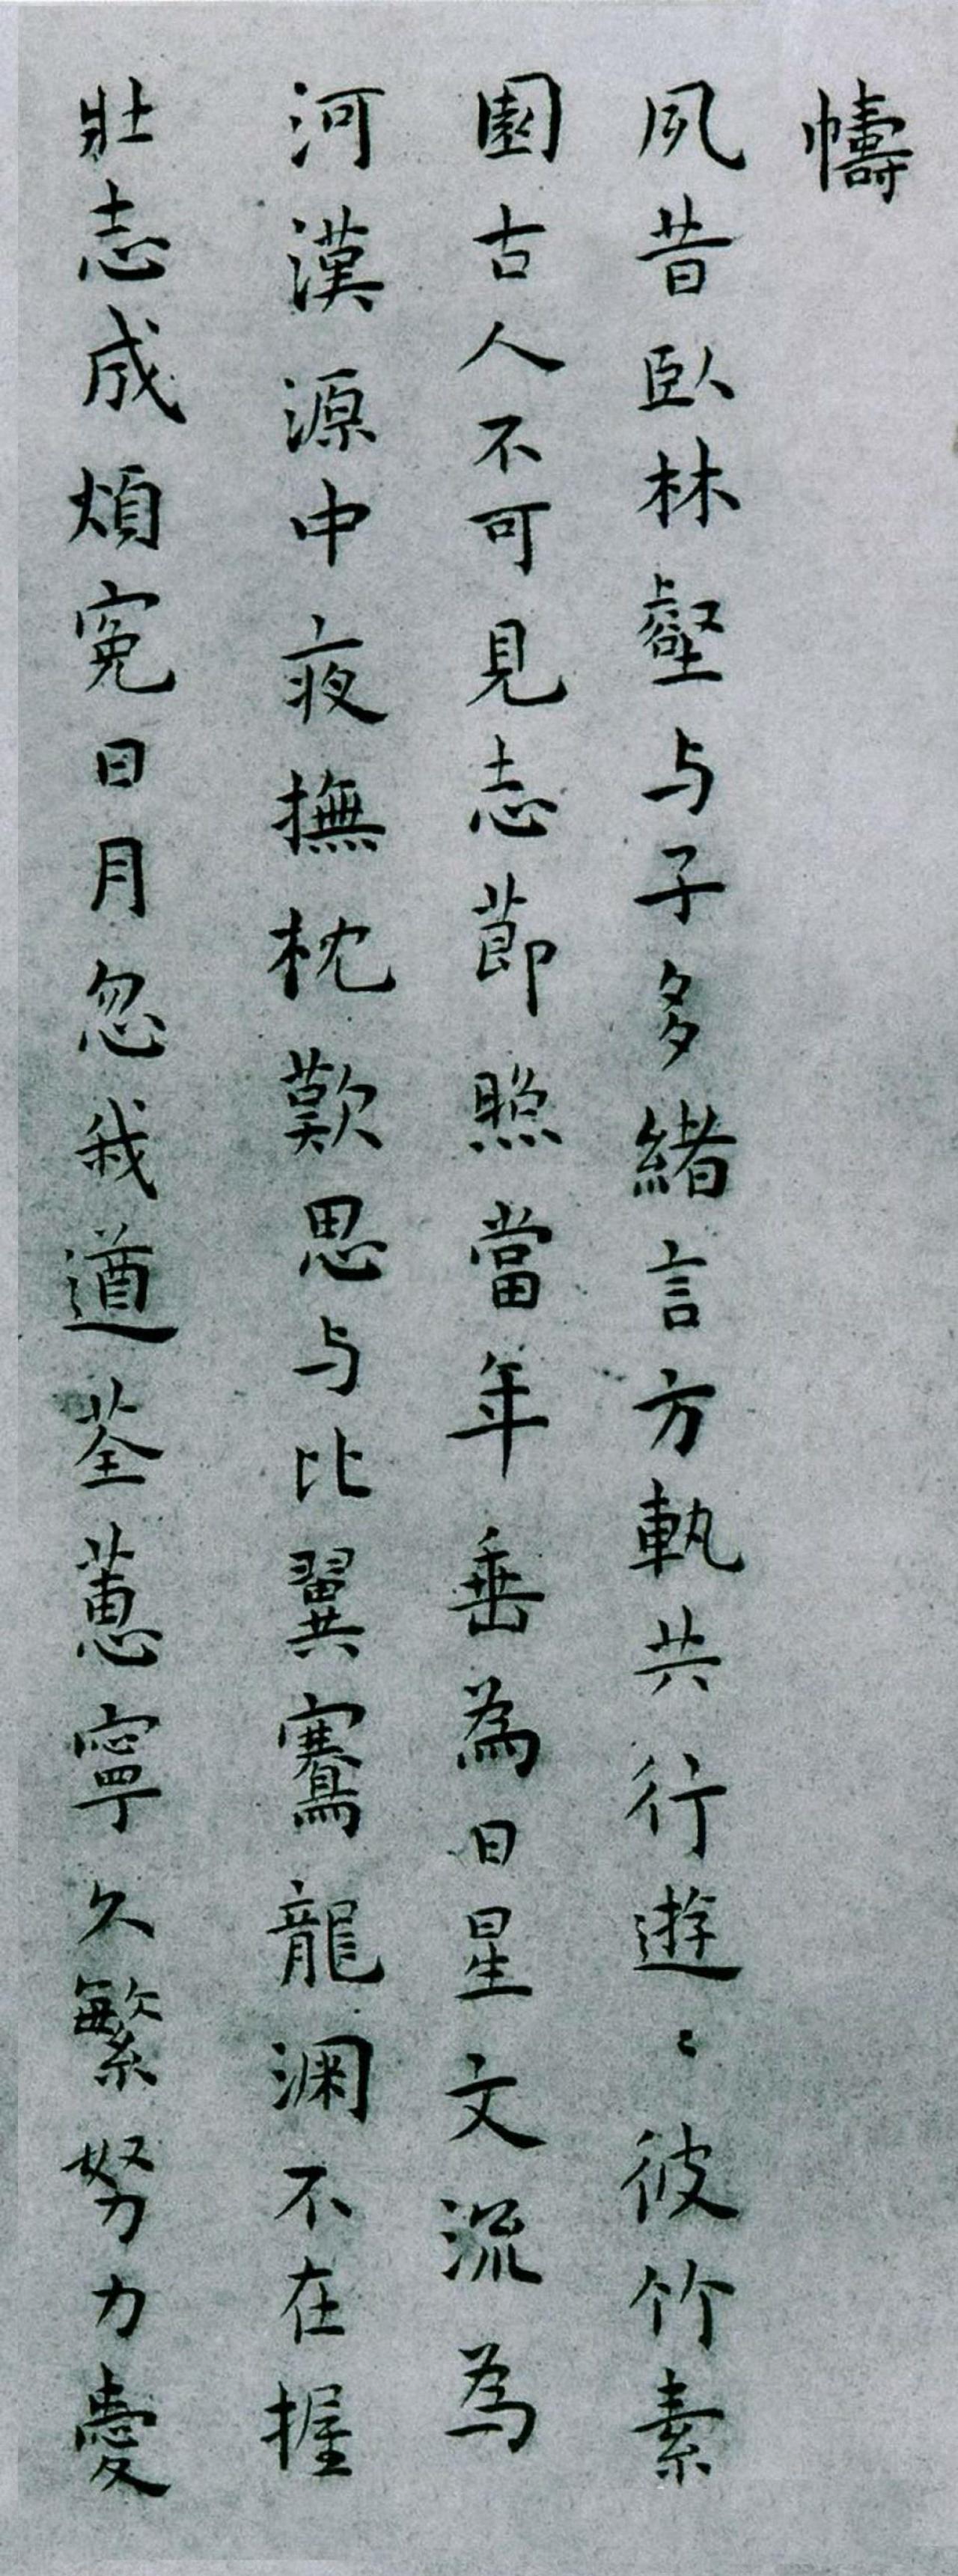 幬
夙昔臥林壑与子多緒言方執共行遊〻彼竹素
園古人不可見志節照當年垂為日星文流為
河漢源中夜撫枕歎思与比翼鶱龍渊不在握
壯志成煩寃日月忽我遒荃蕙寧久繁努力愛